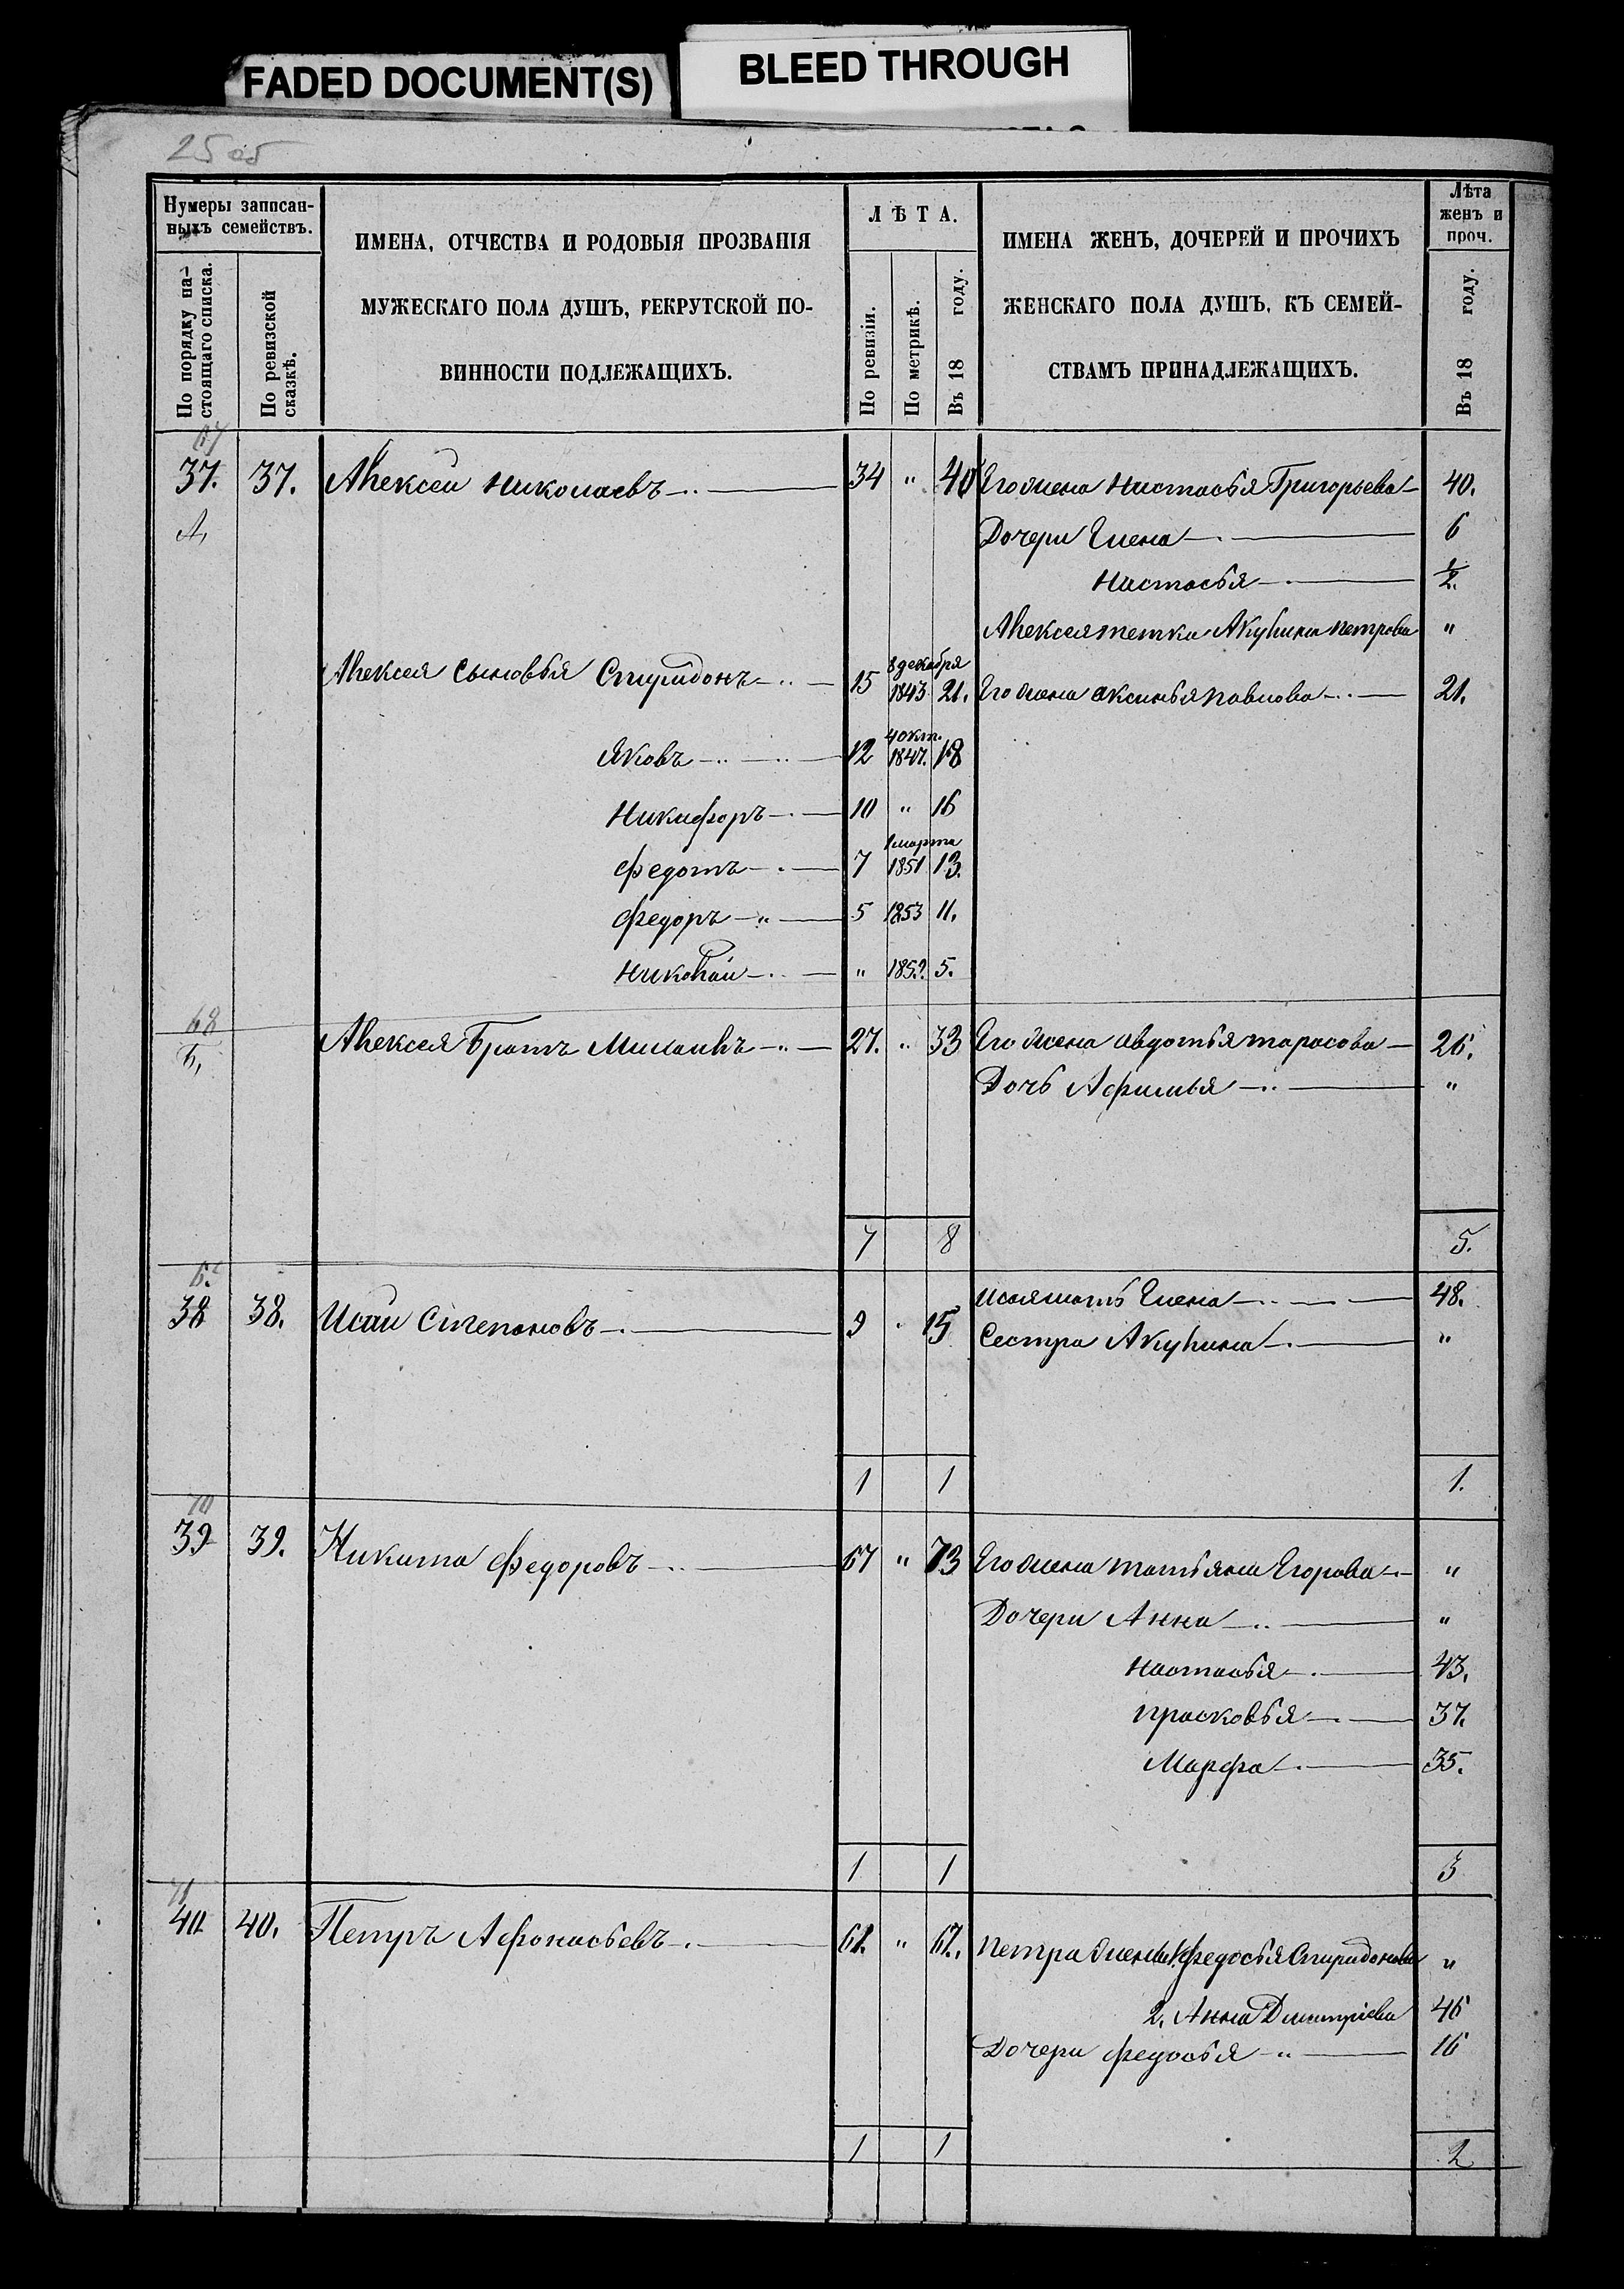 FADED DOCUMENT(S)
BLEED THROUGH
25 об
Нумеры записан-
ныхъ семействъ.
По порядку на-
стоящаго списка.
По ревизской
сказкѣ.
ИМЕНА, ОТЧЕСТВА И РОДОВЫЯ ПРОЗВАНІЯ
МУЖЕСКАГО ПОЛА ДУШЪ, РЕКРУТСКОЙ ПО-
ВИННОСТИ ПОДЛЕЖАЩИХЪ.
ЛѢТА.
По ревизіи.
По метрикѣ.
Въ 18 году.
ИМЕНА ЖЕНЪ, ДОЧЕРЕЙ И ПРОЧИХЪ
ЖЕНСКАГО ПОЛА ДУШЪ, КЪ СЕМЕЙ-
СТВАМЪ ПРИНАДЛЕЖАЩИХЪ.
Лѣта
женъ и
проч.
Въ 18 году.
67
37. 37. Алексей Николаевъ 34 " 40 Его жена Настасья Григорьева 40.
А, Дочери Елена 6
Настасья 1/2.
Алексея тетка Акулина Петрова "
8 декабря
Алексея сыновья Спиридонъ 15 1843 21. Его жена Аксинья Павлова 21.
4 окт.
Яковъ 12 1847. 18
Никифоръ 10 " 16
1 марта
Федотъ 7 1851 13.
Федоръ 5 1853 11.
Николай " 5.
68
Б, Алексея Братъ Михаилъ 27. " 33 Его жена Авдотья Тарасова 26.
Дочь Афимья "
7 8 5.
38 38. Исай Степановъ 9 15 Исая мать Елена 48.
Сестра Акулина "
1 1 1.
70
39 39. Никита Федоровъ 67 " 73 Его жена Татьяна Егорова "
Дочери Анна "
Настасья 43.
Прасковья 37.
Марфа 35.
1 1 3
71
40 40. Петръ Афонасьевъ 61. " 67. Петра жены 1. Федосья Спиридонова "
2. Анна Дмитріева 46
Дочери Федосья " 16
1 1 2